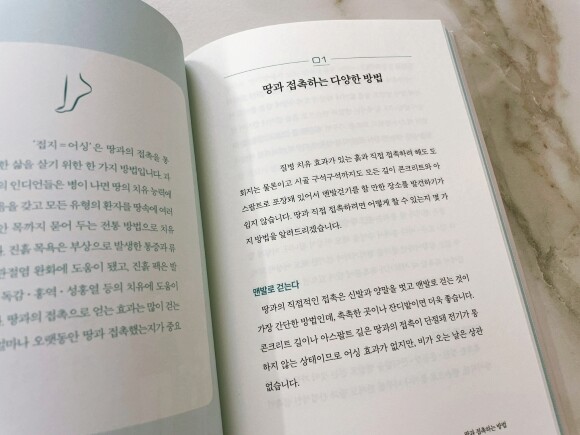 '접지=어싱'은 땅과의 접촉을 통
한 삶을 살기 위한 한 가지 방법입니다. 과
인디언들은 병이 나면 땅의 치유 능력에
음을 갖고 모든 유형의 환자를 땅속에 여러
안 목까지 묻어 두는 전통 방법으로 치유
진흙 목욕은 부상으로 발생한 통증과 류
관절염 완화에 도움이 됐고, 진흙 팩은 방
독감·홍역·성홍열 등의 치유에 도움이
땅과의 접촉으로 얻는 효과는 많이 걷는
얼마나 오랫동안 땅과 접촉했는지가 중요
01
땅과 접촉하는 다양한 방법
질병 치유 효과가 있는 흙과 직접 접촉하려 해도 도
회지는 물론이고 시골 구석구석까지도 모든 길이 콘크리트와 아
스팔트로 포장돼 있어서 맨발걷기를 할 만한 장소를 발견하기가
쉽지 않습니다. 땅과 직접 접촉하려면 어떻게 할 수 있는지 몇 가
지 방법을 알려드리겠습니다.
맨발로 걷는다
땅과의 직접적인 접촉은 신발과 양말을 벗고 맨발로 걷는 것이
가장 간단한 방법인데, 촉촉한 곳이나 잔디밭이면 더욱 좋습니다.
콘크리트 길이나 아스팔트 길은 땅과의 접촉이 단절돼 전기가 통
하지 않는 상태이므로 어싱 효과가 없지만, 비가 오는 날은 상관
없습니다.
땅과 접촉하는 방법